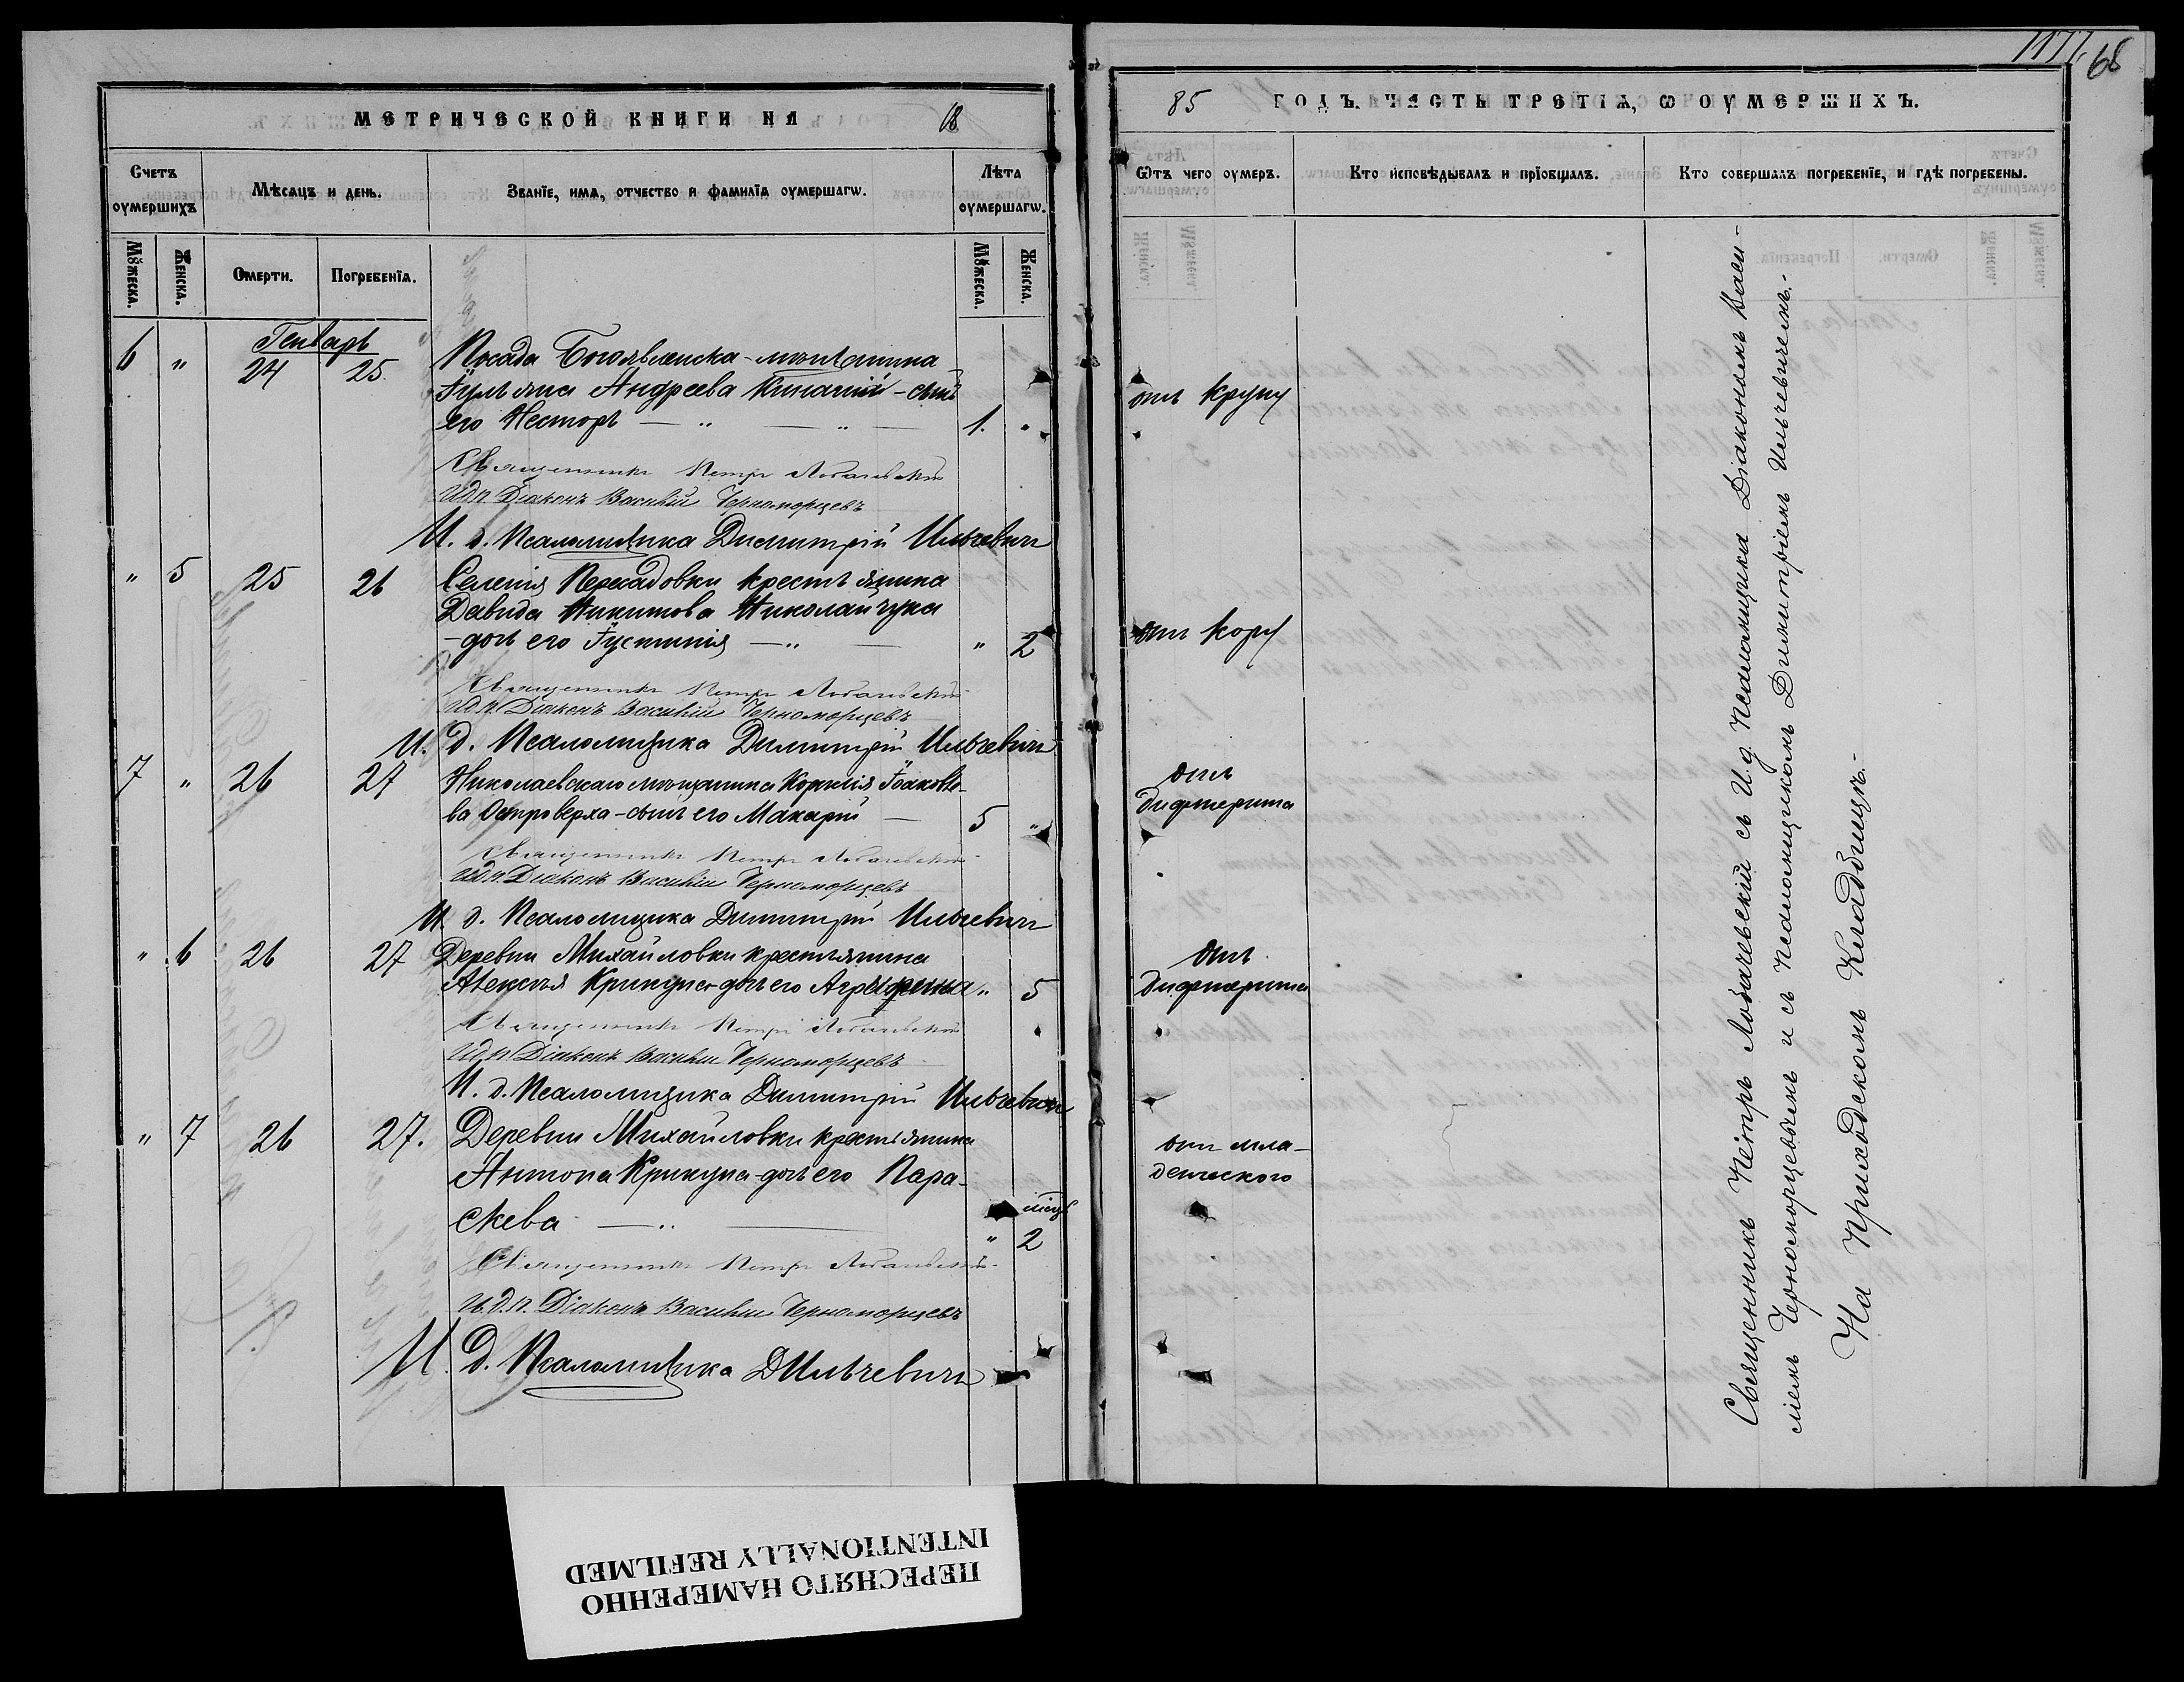 1177.
68
МЕТРИЧЕСКОЙ КНИГИ НА 18
85 ГОДЪ, ЧАСТЬ ТРЕТІѦ, Ѡ ОУМЕРШИХЪ.
Счетъ оумершихъ
Мѣсяцъ и день.
Званїе, имѧ, отчество и фамилїѧ оумершагѡ.
Лѣта оумершагѡ.
Ѿтъ чего оумеръ.
Кто исповѣдывалъ и прїобщалъ.
Кто совершалъ погребенїе, и гдѣ погребены.
Мꙋжеска.
Женска.
Смерти.
Погребенїѧ.
Мꙋжеска.
Женска.
Генварь
6 " 24 25 Посада Богоявленска - мѣщанина
Іуліана Андреева - сынъ
его Несторъ — " — " — 1. "
отъ крупу
Священникъ Петръ Лобачевскій
И.д.п. Діаконъ Василій Черноморцевъ
И. д. Псаломщика Димитрій Ильчевичъ
" 5 25 26 Селенія Пересадовки крестьянина
Давида Никитова Николайчука
- дочь его Іустинія — " — " 2
отъ кору
Священникъ Петръ Лобачевскій
И.д.п. Діаконъ Василій Черноморцевъ
И. д. Псаломщика Димитрій Ильчевичъ
7 " 26 27 Николаевскаго мѣщанина Корнилія Іоаковле-
ва Островерха - сынъ его Макарій — 5 "
отъ
дифтерита
Священникъ Петръ Лобачевскій
И.д.п. Діаконъ Василій Черноморцевъ
И. д. Псаломщика Димитрій Ильчевичъ
" 6 26 27 Деревни Михайловки крестьянина
Алексѣя Крикуна - дочь его Агрипина " 5
отъ
дифтерита
Священникъ Петръ Лобачевскій
И.д.п. Діаконъ Василій Черноморцевъ
И. д. Псаломщика Димитрій Ильчевичъ
" 7 26 27. Деревни Михайловки крестьянина
Антона Крикуна - дочь его Пара-
скева — " — " мѣс. 2
отъ мла-
денческого
Священникъ Петръ Лобачевскій
И.д.п. Діаконъ Василій Черноморцевъ
И. д. Псаломщика Д Ильчевичъ
Священникъ Петръ Лобачевскій съ И. д. Псаломщика Діакономъ Васи-
ліемъ Черноморцевымъ и съ Псаломщикомъ Димитріемъ Ильчевичемъ. -
На приходскомъ кладбищѣ. -
ПЕРЕСНЯТО НАМЕРЕННО
INTENTIONALLY REFILMED